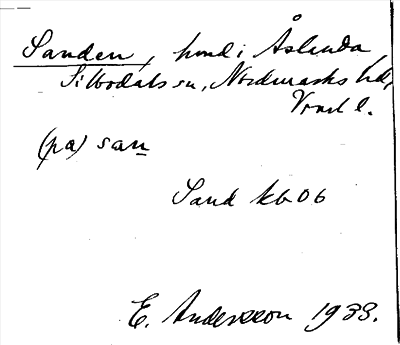 Sanden, hmd i Åslanda,
Silbodals sn, Nordmarks hd,
Vrml l.
(pa) san
Sand kb 06
E. Andersson 1938.